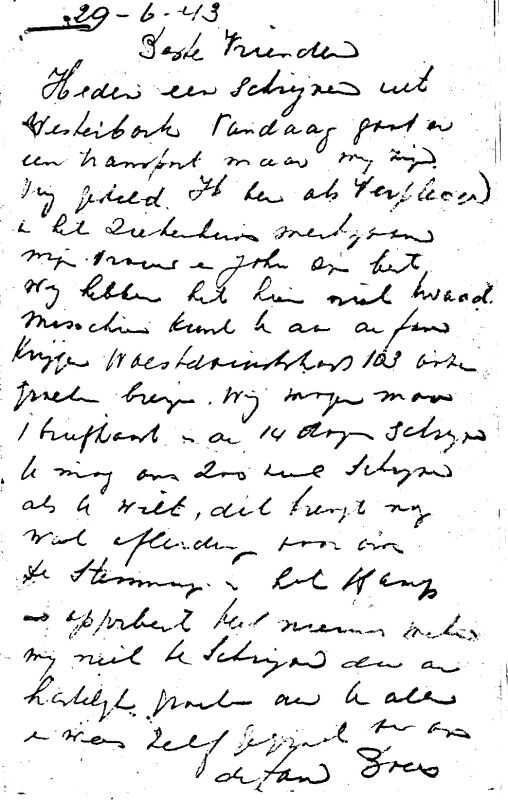 29-6-43
Beste Vrienden
Heden een Schrijven uit
Westerbork Vandaag gaat er
een transport maar wij zijn
vrij gesteld. Ik ben als Verpleger
in het Ziekenhuis werkzaam
mijn Vrouw en John
Wij hebben het hier niet kwaad.
Misschien kunt U aan de fam
103 onze
groeten brengen. Wij mogen maar
1 briefkaart in de 14 dagen Schrijven
U mag ons zoo veel Schrijven
als U wilt, dit brengt nog
wat afleiding voor ons
De Stemming in het Kamp
is opperbest
mij niet te Schrijven dan de
hartelijke groeten aan U allen
en wees Zelf gegroet van ons
de fam Drees